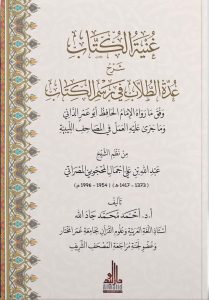 غنية الكتاب
شرح
عدة الطلاب في رسم الكتاب
وفق ما رواه الإمام الحافظ أبو عمرو الداني
وما جرى عليه العمل في المصاحف الليبية
من نظم الشيخ
عبد الله بن علي
المصراتي
(1373 - 1417 هـ) (1954 - 1996 م)
تأليف
أ.د. أحمد محمد جاد الله
أستاذ اللغة العربية وعلوم القرآن بجامعة عمر المختار
وعضو لجنة مراجعة المصحف الشريف